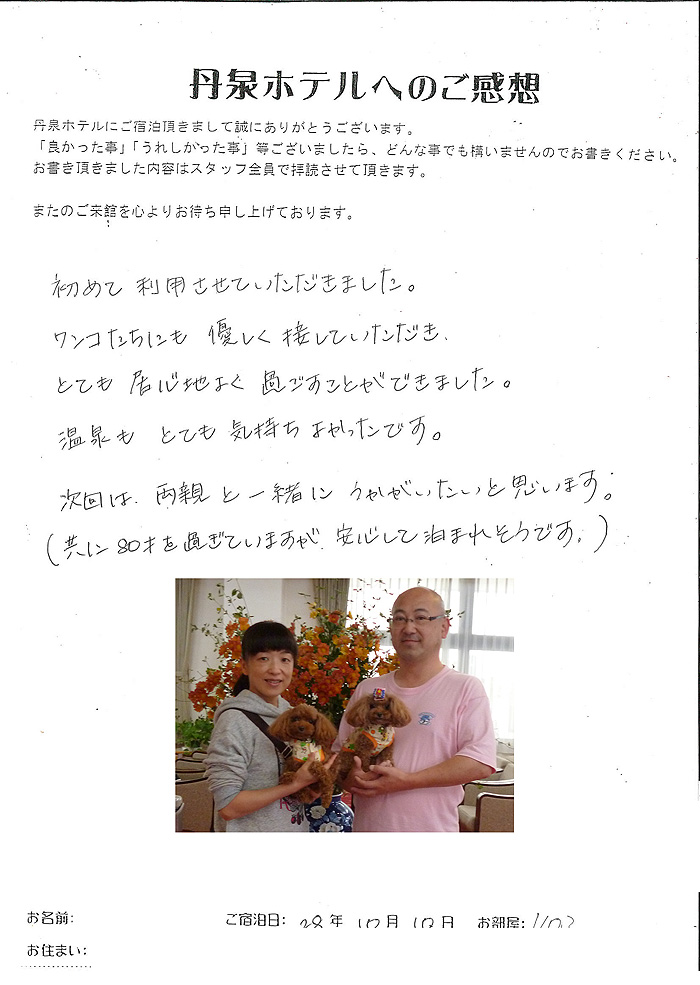 丹泉ホテルへのご感想
丹泉ホテルにご宿泊頂きまして誠にありがとうございます。
「良かった事」「うれしかった事」等ございましたら、どんな事でも構いませんのでお書きください。
お書き頂きました内容はスタッフ全員で拝読させて頂きます。
またのご来館を心よりお待ち申し上げております。
初めて利用させていただきました。
ワンコたちにも優しく接していただき、
とても居心地よく過ごすことができました。
温泉もとても気持ちよかったです。
次回は、両親と一緒にうかがいたいと思います。
(共に80才を過ぎていますが、安心して泊まれそうです。)
お名前:
ご宿泊日: 28年 10月 10日 お部屋:
お住まい: